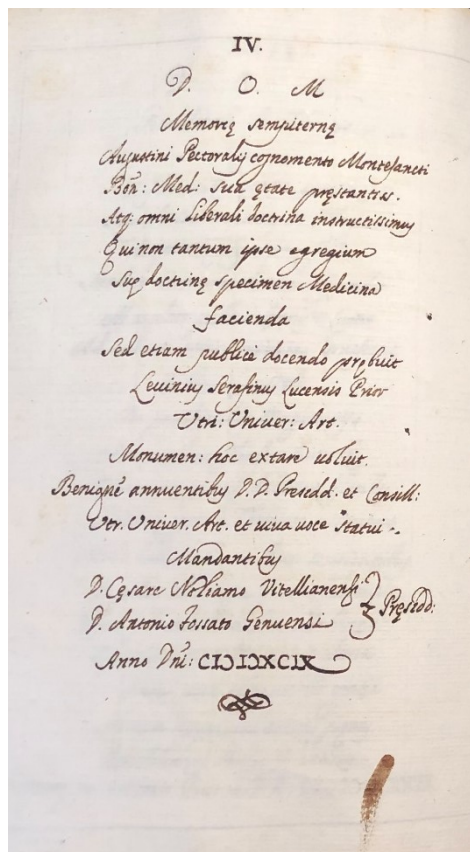 IV.
D. O. M
Memorię sempiternę
Augustini Pectoralij cognomento Montesancti
Bon: Med: sua ętate pręstantiss.
Atq: omni Liberali doctrina instructissimus
Qui non tantum ipse egregium
Suę doctrinę specimen Medicina
facienda
Sed etiam publicè docendo prębuit
Levinius Serafinus Lucensis Prior
Utri: Univer: Art.
Monumen: hoc extare voluit.
Benignè annuentibus D. D. Presedd. et Consill:
Utr. Univer. Art. et viva voce statui -.
Mandantibus
D. Cęsare Nobiamo Vitellianensi
D. Antonio Fossato Genuensi } Pręsedd:
Anno Dni: CIↃIↃXCIX